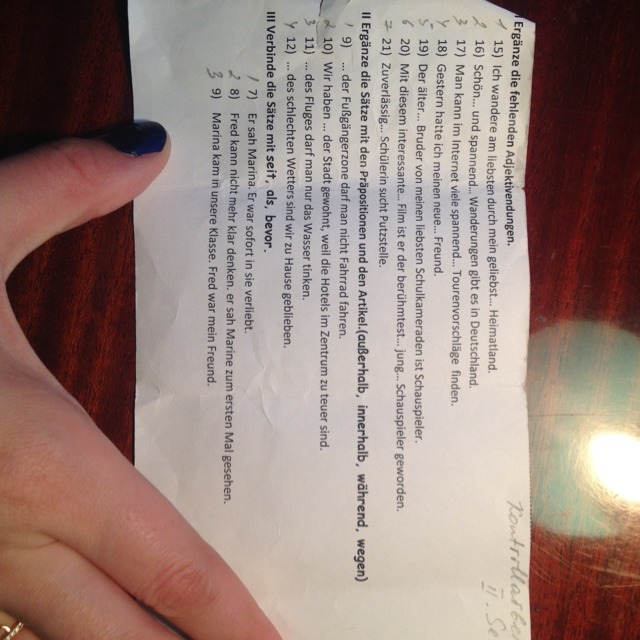 Kontrollarbe
II. Se
I Ergänze die fehlenden Adjektivendungen.
1 15) Ich wandere am liebsten durch mein geliebst... Heimatland.
2 16) Schön... und spannend... Wanderungen gibt es in Deutschland.
3 17) Man kann im Internet viele spannend... Tourenvorschläge finden.
4 18) Gestern hatte ich meinen neue... Freund.
5 19) Der älter... Bruder von meinen liebsten Schulkameraden ist Schauspieler.
6 20) Mit diesem interessante... Film ist er der berühmtest... jung... Schauspieler geworden.
7 21) Zuverlässig... Schülerin sucht Putzstelle.
II Ergänze die Sätze mit den Präpositionen und den Artikel.(außerhalb, innerhalb, während, wegen)
1 9) ... der Fußgängerzone darf man nicht Fahrrad fahren.
2 10) Wir haben ... der Stadt gewohnt, weil die Hotels im Zentrum zu teuer sind.
3 11) ... des Fluges darf man nur das Wasser tinken.
4 12) ... des schlechten Wetters sind wir zu Hause geblieben.
III Verbinde die Sätze mit seit, als, bevor.
1 7) Er sah Marina. Er war sofort in sie verliebt.
2 8) Fred kann nicht mehr klar denken. er sah Marine zum ersten Mal gesehen.
3 9) Marina kam in unsere Klasse. Fred war mein Freund.